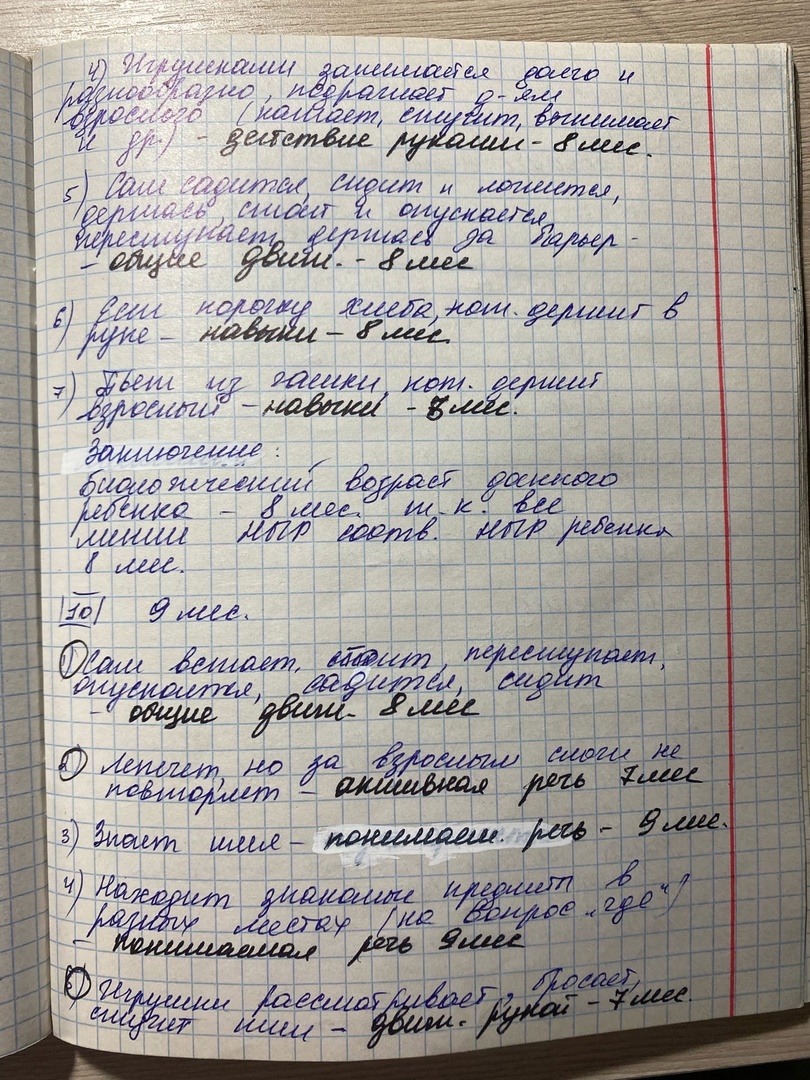 4) Игрушками занимается долго и
разнообразно, подражает д-ям
взрослого (катает, стучит, вынимает
и др.) - действие руками - 8 мес.
5) Сам садится, сидит и ложится,
держась, стоит и опускается,
переступает, держась за барьер -
- общие движ. - 8 мес
6) Ест корочку хлеба, кот. держит в
руке - навыки - 8 мес
7) Пьет из чашки, кот. держит
взрослый - навыки - 7 мес.
Заключение:
биологический возраст данного
ребенка - 8 мес. т. к. все
линии НПР соотв. НПР ребенка
8 мес.
|10| 9 мес.
1) Сам встает, стоит, переступает,
опускается, садится, сидит
- общие движ - 8 мес
2) Лепечет, но за взрослым слоги не
повторяет - активная речь 7 мес
3) Знает имя - понимаем. речь - 9 мес.
4) Находит знакомые предметы в
разных местах (на вопрос „где")
- понимаемая речь 9 мес
5) Игрушки рассматривает, бросает,
стучит ими - движ. рукой - 7 мес.